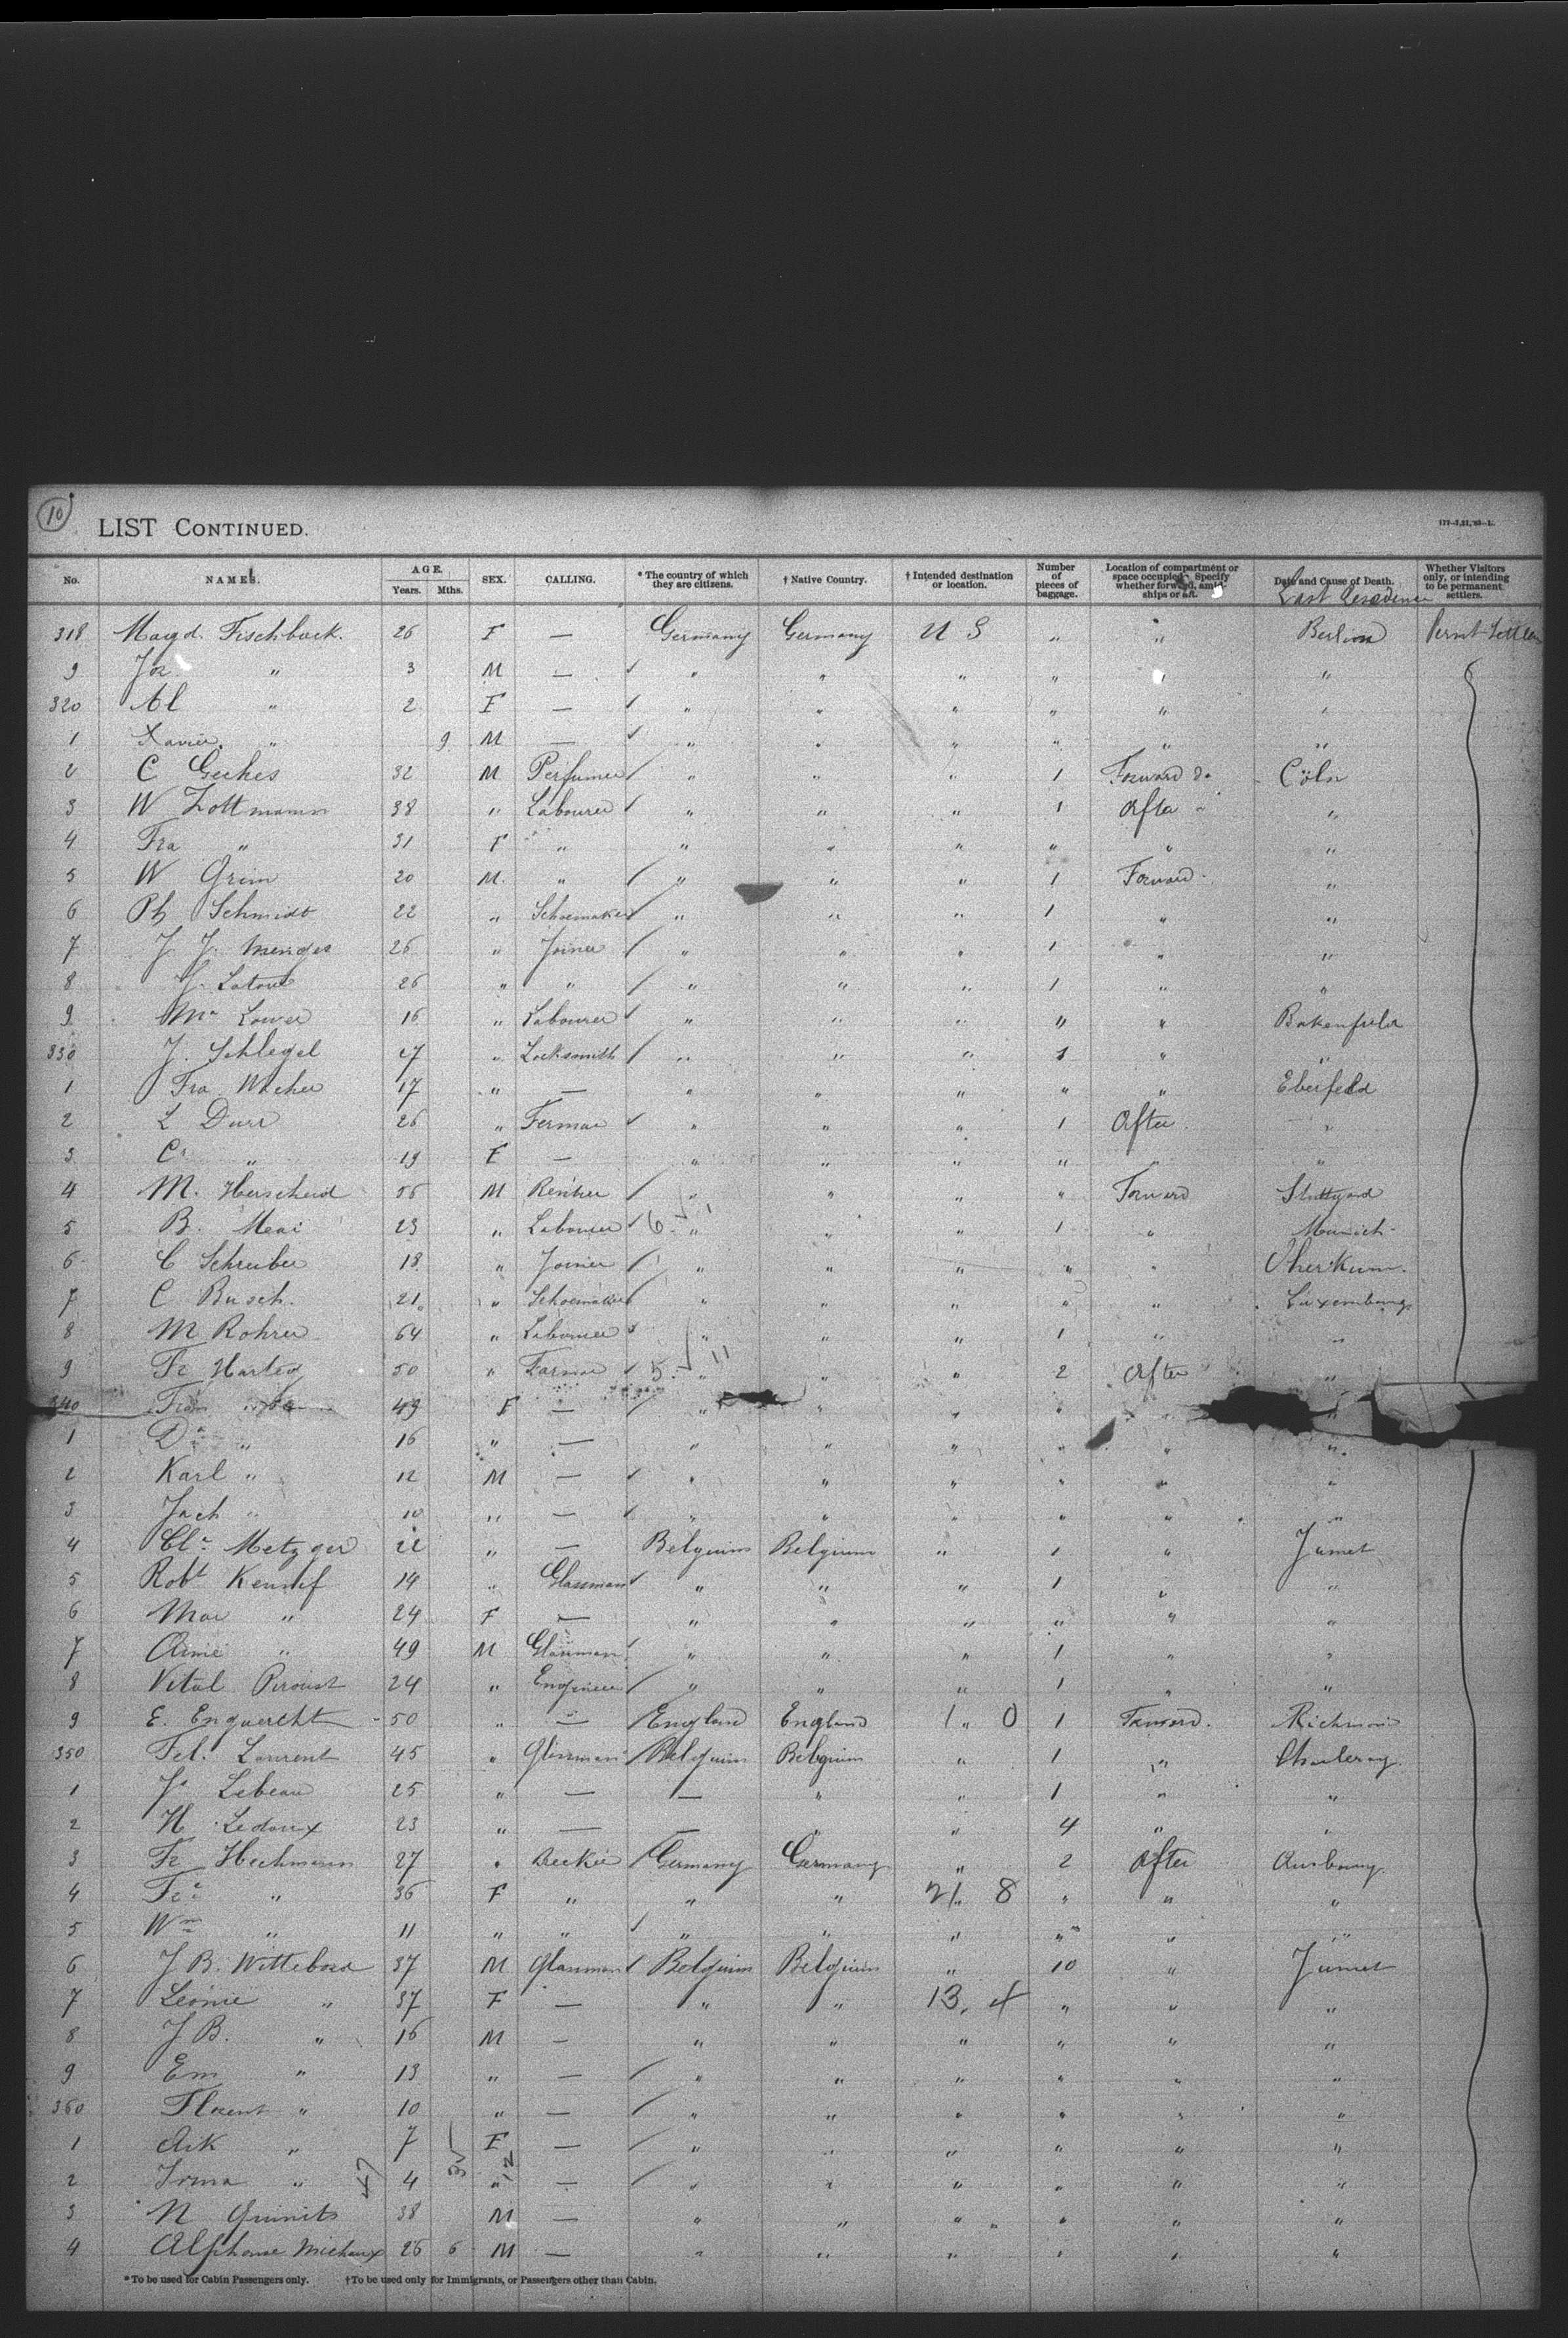 10
LIST CONTINUED.
No. NAMES. AGE. Years. Mths. SEX. CALLING. * The country of which they are citizens. † Native Country. † Intended destination or location. Number of pieces of baggage. Location of compartment or space occupied. Specify whether forward, amid-ships or aft. Date and Cause of Death. Last Residence Whether Visitors only, or intending to be permanent settlers.
318 Magd. Fischback. 26 F — Germany Germany U S " " Berlin
9 Jos " 3 M — " " " " " "
320 Al " 2 F — " " " " " "
1 Xavier " 9 M — " " " " " "
2 C Gerhes 32 M Perfumer " " " 1 Forward do Cöln
3 W Zottmann 38 " Labourer " " " 1 After " "
4 Fra " 31 F " " " " " " "
5 W Grim 20 M. " " " " 1 Forward "
6 Ph Schmidt 22 " Schoemaker " " " 1 " "
7 J J. Menges 26 " Joiner " " " 1 " "
8 J. Latour 26 " " " " " 1 " "
9 Mr Lower 16 " Labourer " " " " "
330 J. Schlegel 47 " Locksmith " " " 1 " "
1 Fra Wicher 17 " — " " " " " Eberfeld
2 L Durr 26 " Fermar " " " 1 After "
3 Cr " 19 F — " " " " " "
4 M. Herscheid 56 M Rentier " " " " Forward Stuttgard
5 B. Meai 23 " Labourer 6 " " " 1 " Munich
6 C Schreiber 18 " Joiner " " " " "
7 C Busch. 21 " Schoemaker " " " " " Luxembourg
8 M Rohrer 64 " Labourer " " " 1 " "
9 Fr Harter 50 " Farmer 5. 11 " " " 2 After "
340 49 F — " " " " "
1 Da " 16 " — " " " " " "
2 Karl " 12 M — " " " " " "
3 Jach " 10 " — " " " " " "
4 Cle Metzger 22 " — Belgium Belgium " 1 " Jumet
5 Robt 14 " Glassman " " " 1 " "
6 Mar " 24 F — " " " " " "
7 Aimé " 49 M Glassman " " " 1 " "
8 Vital Piroust 24 " Engineer " " " 1 " "
9 E. Enguercht 50 " — England England 1 " 0 1 Forward. Richmon
350 Fel. Laurent 45 " Glassman Belgium Belgium " 1 " Charleroy.
1 Js Lebeau 25 " — — " " 1 " "
2 H Ledoux 23 " — — " " 4 " "
3 Fr Heckmann 27 " Germany Germany " 2 After Ausbourg.
4 Fra " 36 F " " " 21 8 " " "
5 Wm " 11 " " " " " " " "
6 J B. Wittebord 37 M Glassman Belgium Belgium " 10 " Jumet
7 Léonie " 37 F — " " 13. 4 " " "
8 J B. " 16 M — " " " " " "
9 Em " 13 " — " " " " " "
360 Florent " 10 " — " " " " " "
1 " 7 F — " " " " " "
2 Irma " 4 " — " " " " " "
3 N Quinits 38 M — " " " " " "
4 Alphonse Michaux 26 6 M — " " " " " "
* To be used for Cabin Passengers only. † To be used only for Immigrants, or Passengers other than Cabin.